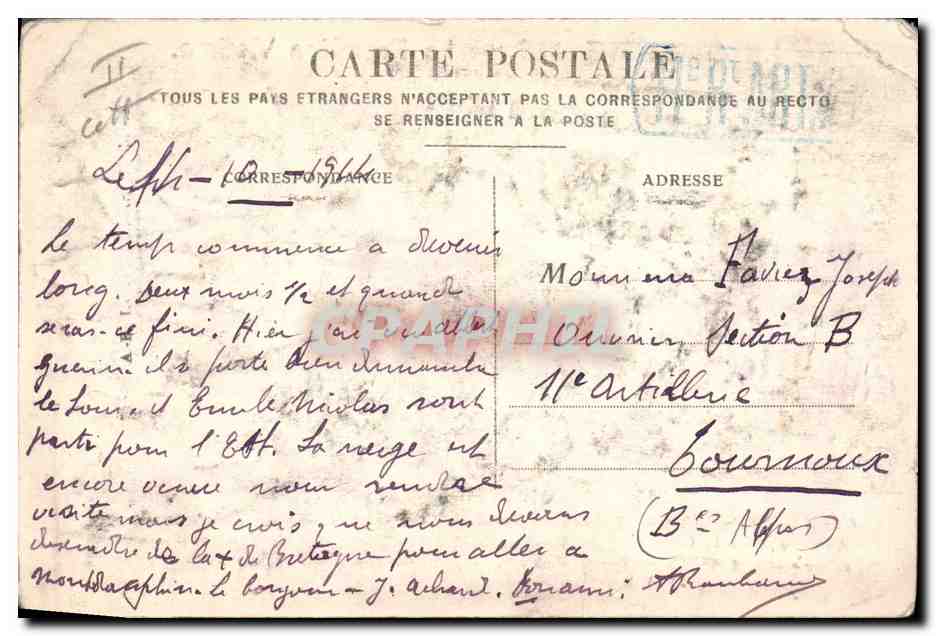 II
CARTE POSTALE
TOUS LES PAYS ETRANGERS N'ACCEPTANT PAS LA CORRESPONDANCE AU RECTO
SE RENSEIGNER A LA POSTE
Le 10 - 1914
CORRESPONDANCE
ADRESSE
Le temp commence a devenir
long. Deux mois 1/2 et quand
seras-ce fini. Hier j'ai vu
il se porte bien
le soir. et Emile Nicolas sont
parti pour l'Est. La neige est
encore venue nous rendre
visite mais je crois que nous devons
desendre de la + de Bretagne pour aller a
montdauphin. Le bonjour - J. achard.
Favier Joseph
Ouvrier Section B
11e artillerie
Tournoux
(Bses Alpes)
CPAPHIL